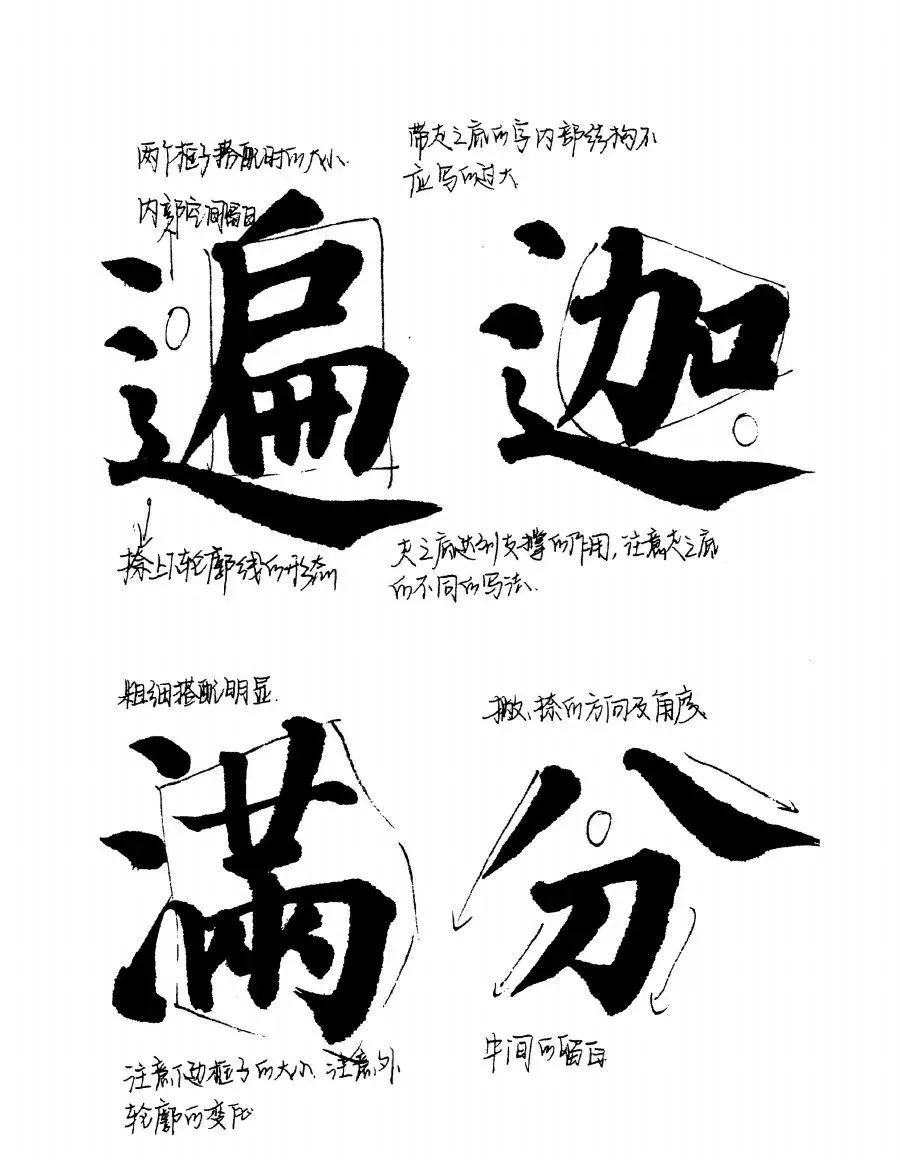 两个框子搭配时的大小.
内部空间留白
带走之底的字内部结构不
应写的过大
遍
迦
捺上下轮廓线的形态
走之底达到支撑的作用,注意走之底
的不同的写法.
粗细搭配明显.
撇、捺的方向及角度
满
分
注意下边框子的大小.注意外
轮廓的变化
中间的留白